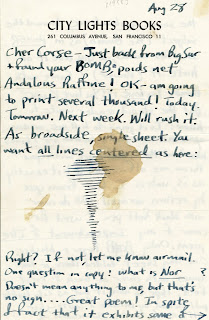 Aug 28
CITY LIGHTS BOOKS
261 COLUMBUS AVENUE, SAN FRANCISCO 11
Cher Corse – Just back from Big Sur
+ found your BOMB,
OK – am going
to print several thousand! Today.
Tomorrow. Next week. Will rush it.
As broadside, single sheet. You
want all lines centered as here:
Right? If not let me know airmail.
One question in copy: what is Nor ?
Doesn't mean anything to me, but that's
no sign.... Great poem! In spite
of fact that it exhibits some of